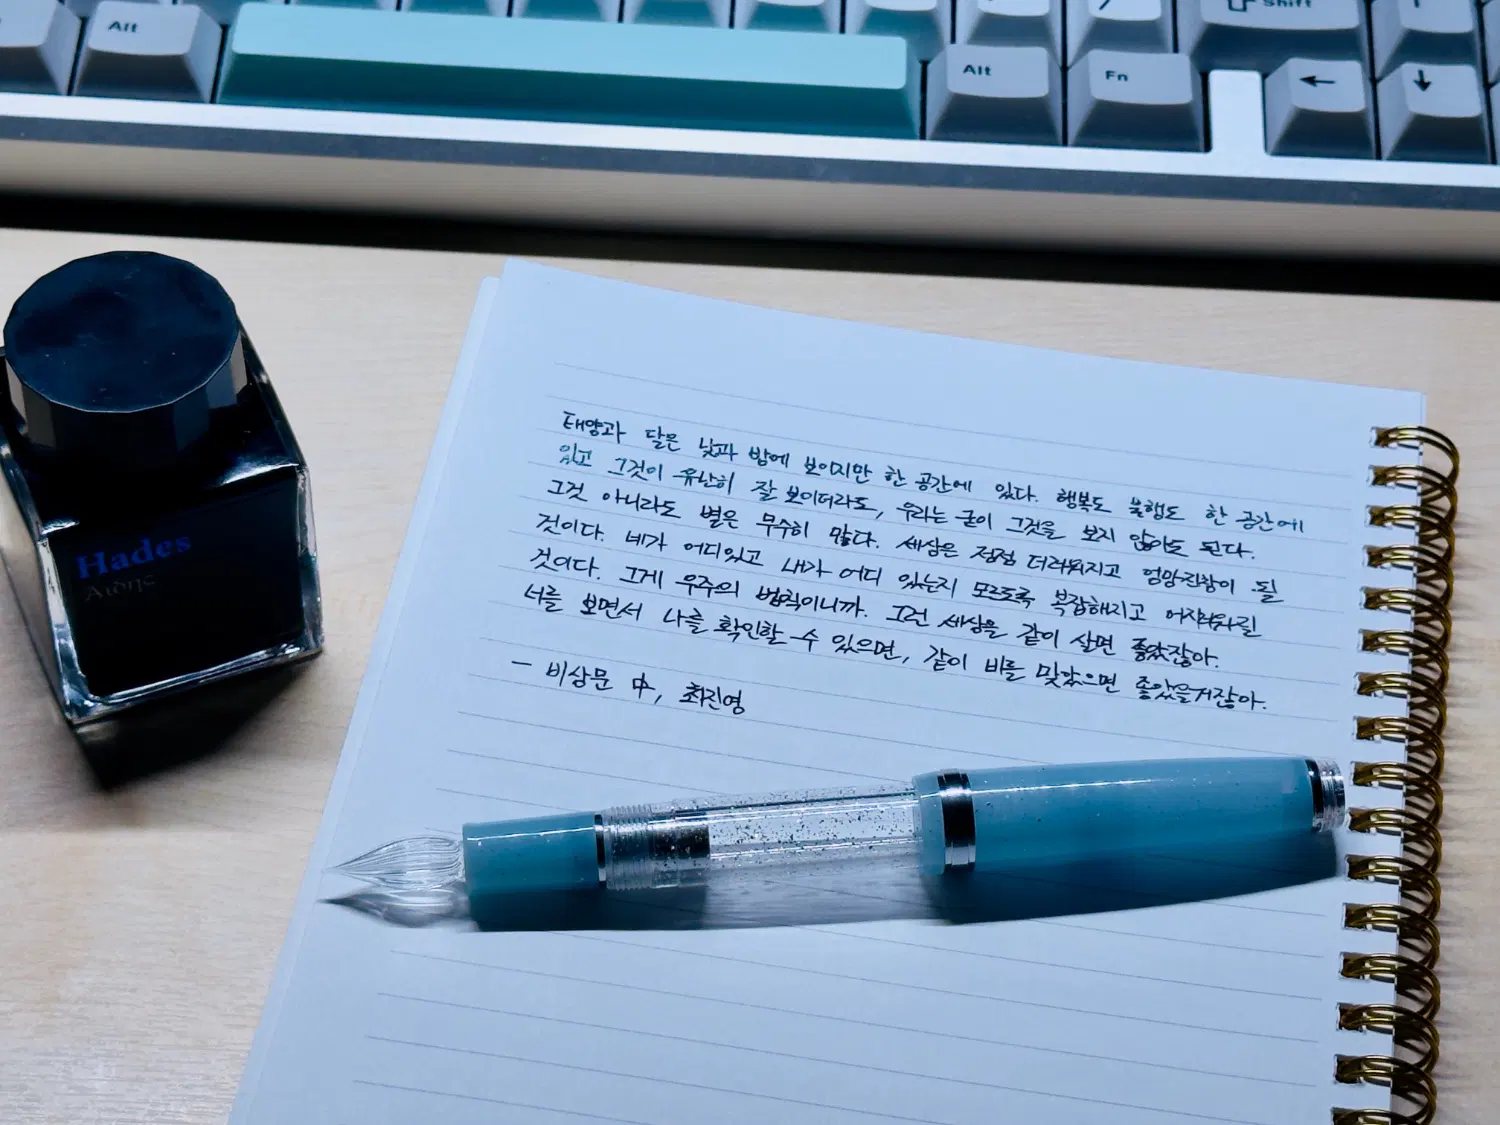 Alt
Alt
Fn
Shift
←
↓
Hades
Αιδης
태양과 달은 낮과 밤에 보이지만 한 공간에 있다. 행복도 불행도 한 공간에
있고 그것이 유난히 잘 보이더라도, 우리는 굳이 그것을 보지 않아도 된다.
그것 아니라도 별은 무수히 많다. 세상은 점점 더러워지고 엉망진창이 될
것이다. 네가 어디있고 내가 어디 있는지 모르도록 복잡해지고 어지러워질
것이다. 그게 우주의 법칙이니까. 그런 세상을 같이 살면 좋았잖아.
너를 보면서 나를 확인할 수 있으면, 같이 비를 맞았으면 좋았을거잖아.
— 비상문 中, 최진영